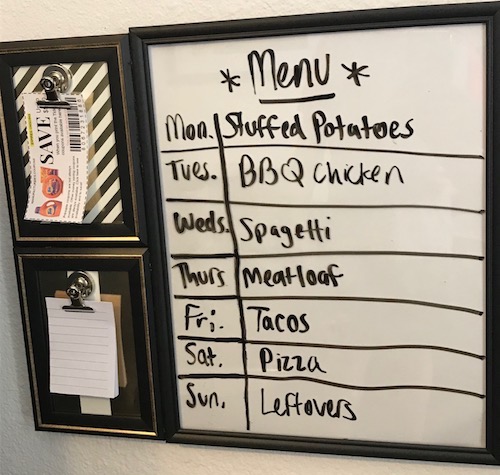 * Menu *
Mon. Stuffed Potatoes
Tues. BBQ Chicken
Weds. Spagetti
Thurs Meatloaf
Fri. Tacos
Sat. Pizza
Sun. Leftovers
SAVE